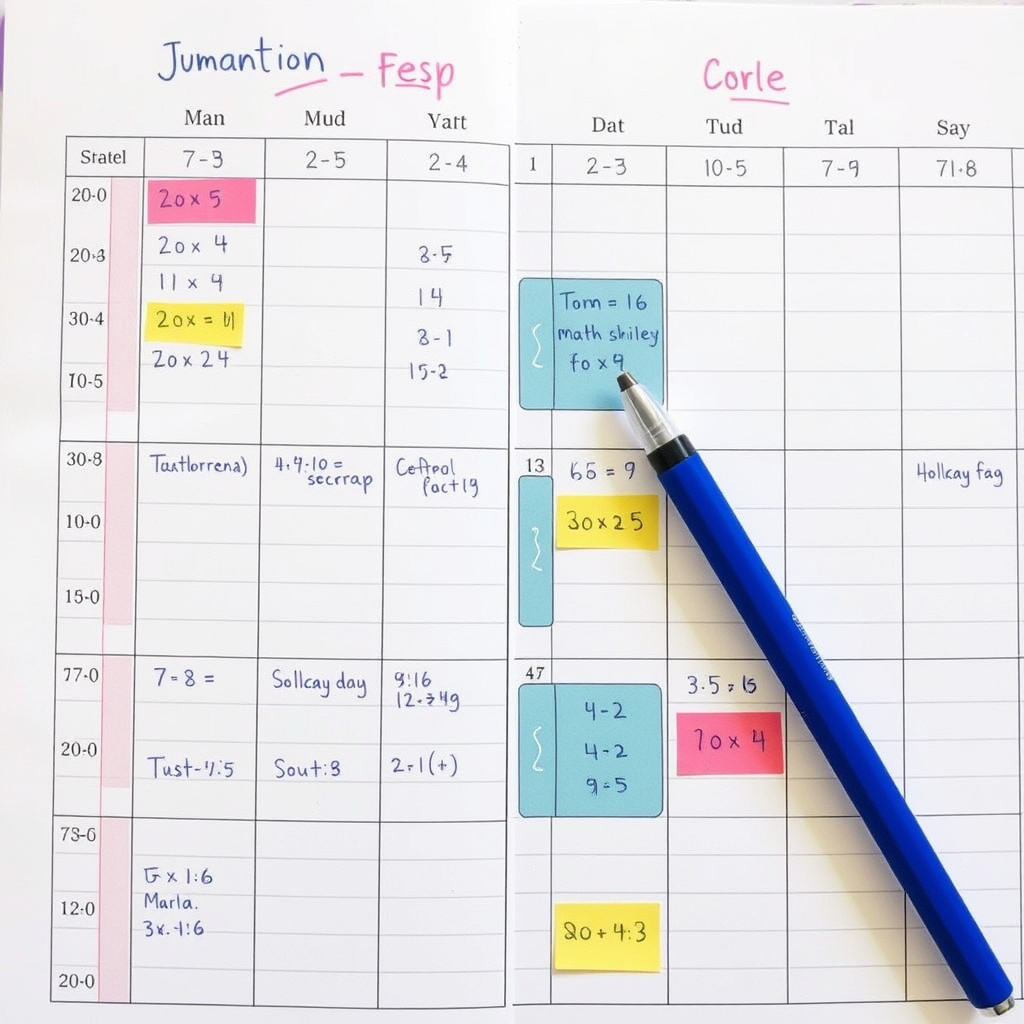 Jumantion - Fesp
Corle
Man Mud Yatt
Dat Tud Tal Say
Statel 7-3 2-5 2-4
1 2-3 10-5 7-9 71.8
20-0 20x5
20x 4
20-3 3-5
11 x 4
14
30-4
3-1
20x24
10-5 15-2
Tom = 16
math
fo x 9
30-8 4.4:10 =
secrrap
10-0
15-0
13 65 = 9 Hollcay fag
30x25
77-0 7=8 = Sollcay day 9:16
20-0 Sout:3 2=1(+)
47 3.5 = 15
4-2
4-2 70x 4
9=5
73-6
x 1:6
12:0 Marla.
20-0
20+4:3